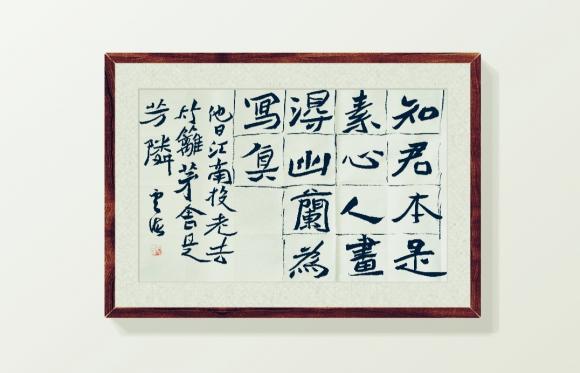 知君本是
素心人畫
得幽蘭為
寫真
他日江南投老去
竹籬茅舍是
芳隣